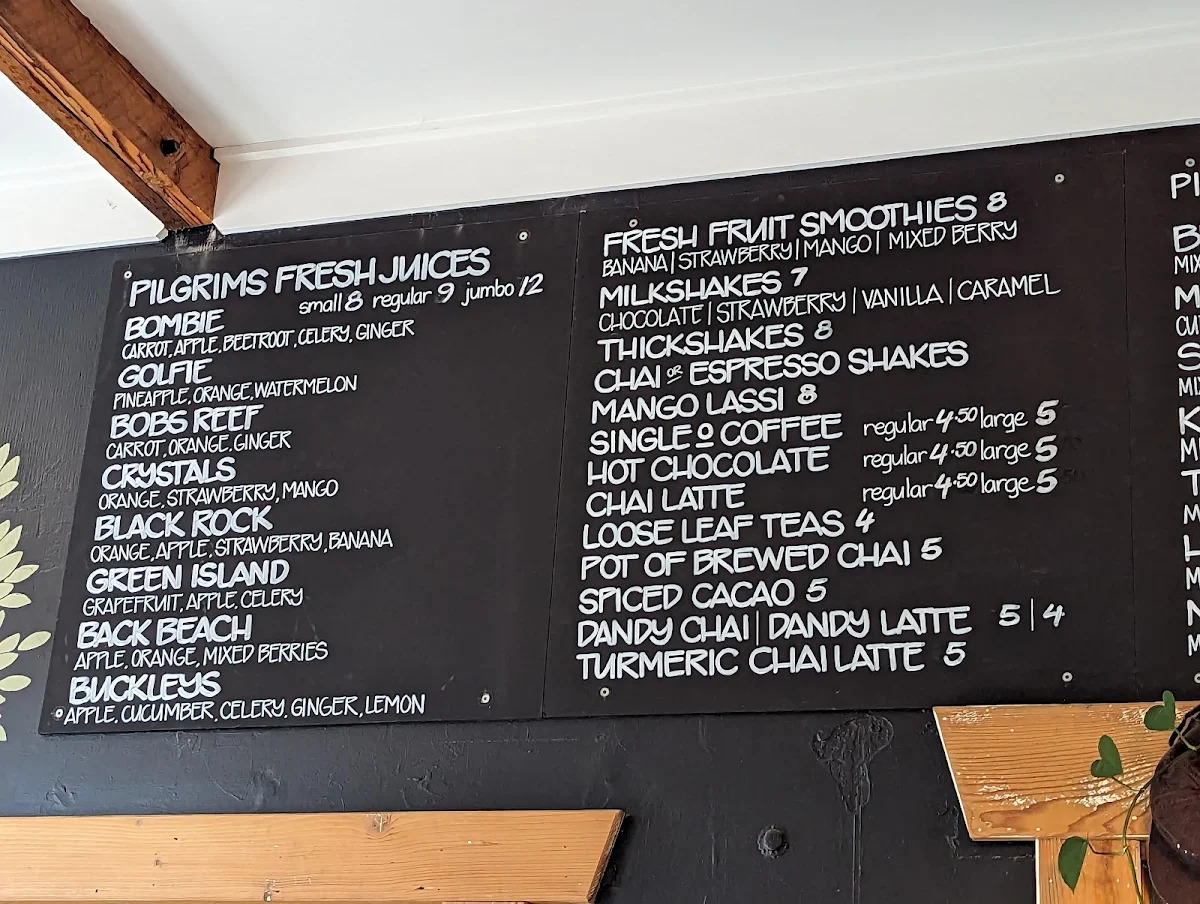 PILGRIMS FRESH JUICES
small 8 regular 9 jumbo 12
BOMBIE
CARROT, APPLE, BEETROOT, CELERY, GINGER
GOLFIE
PINEAPPLE, ORANGE, WATERMELON
BOBS REEF
CARROT, ORANGE, GINGER
CRYSTALS
ORANGE, STRAWBERRY, MANGO
BLACK ROCK
ORANGE, APPLE, STRAWBERRY, BANANA
GREEN ISLAND
GRAPEFRUIT, APPLE, CELERY
BACK BEACH
APPLE, ORANGE, MIXED BERRIES
BUCKLEYS
APPLE, CUCUMBER, CELERY, GINGER, LEMON
FRESH FRUIT SMOOTHIES 8
BANANA | STRAWBERRY | MANGO | MIXED BERRY
MILKSHAKES 7
CHOCOLATE | STRAWBERRY | VANILLA | CARAMEL
THICKSHAKES 8
CHAI OR ESPRESSO SHAKES
MANGO LASSI 8
SINGLE O COFFEE regular 4.50 large 5
HOT CHOCOLATE regular 4.50 large 5
CHAI LATTE regular 4.50 large 5
LOOSE LEAF TEAS 4
POT OF BREWED CHAI 5
SPICED CACAO 5
DANDY CHAI | DANDY LATTE 5 | 4
TURMERIC CHAI LATTE 5